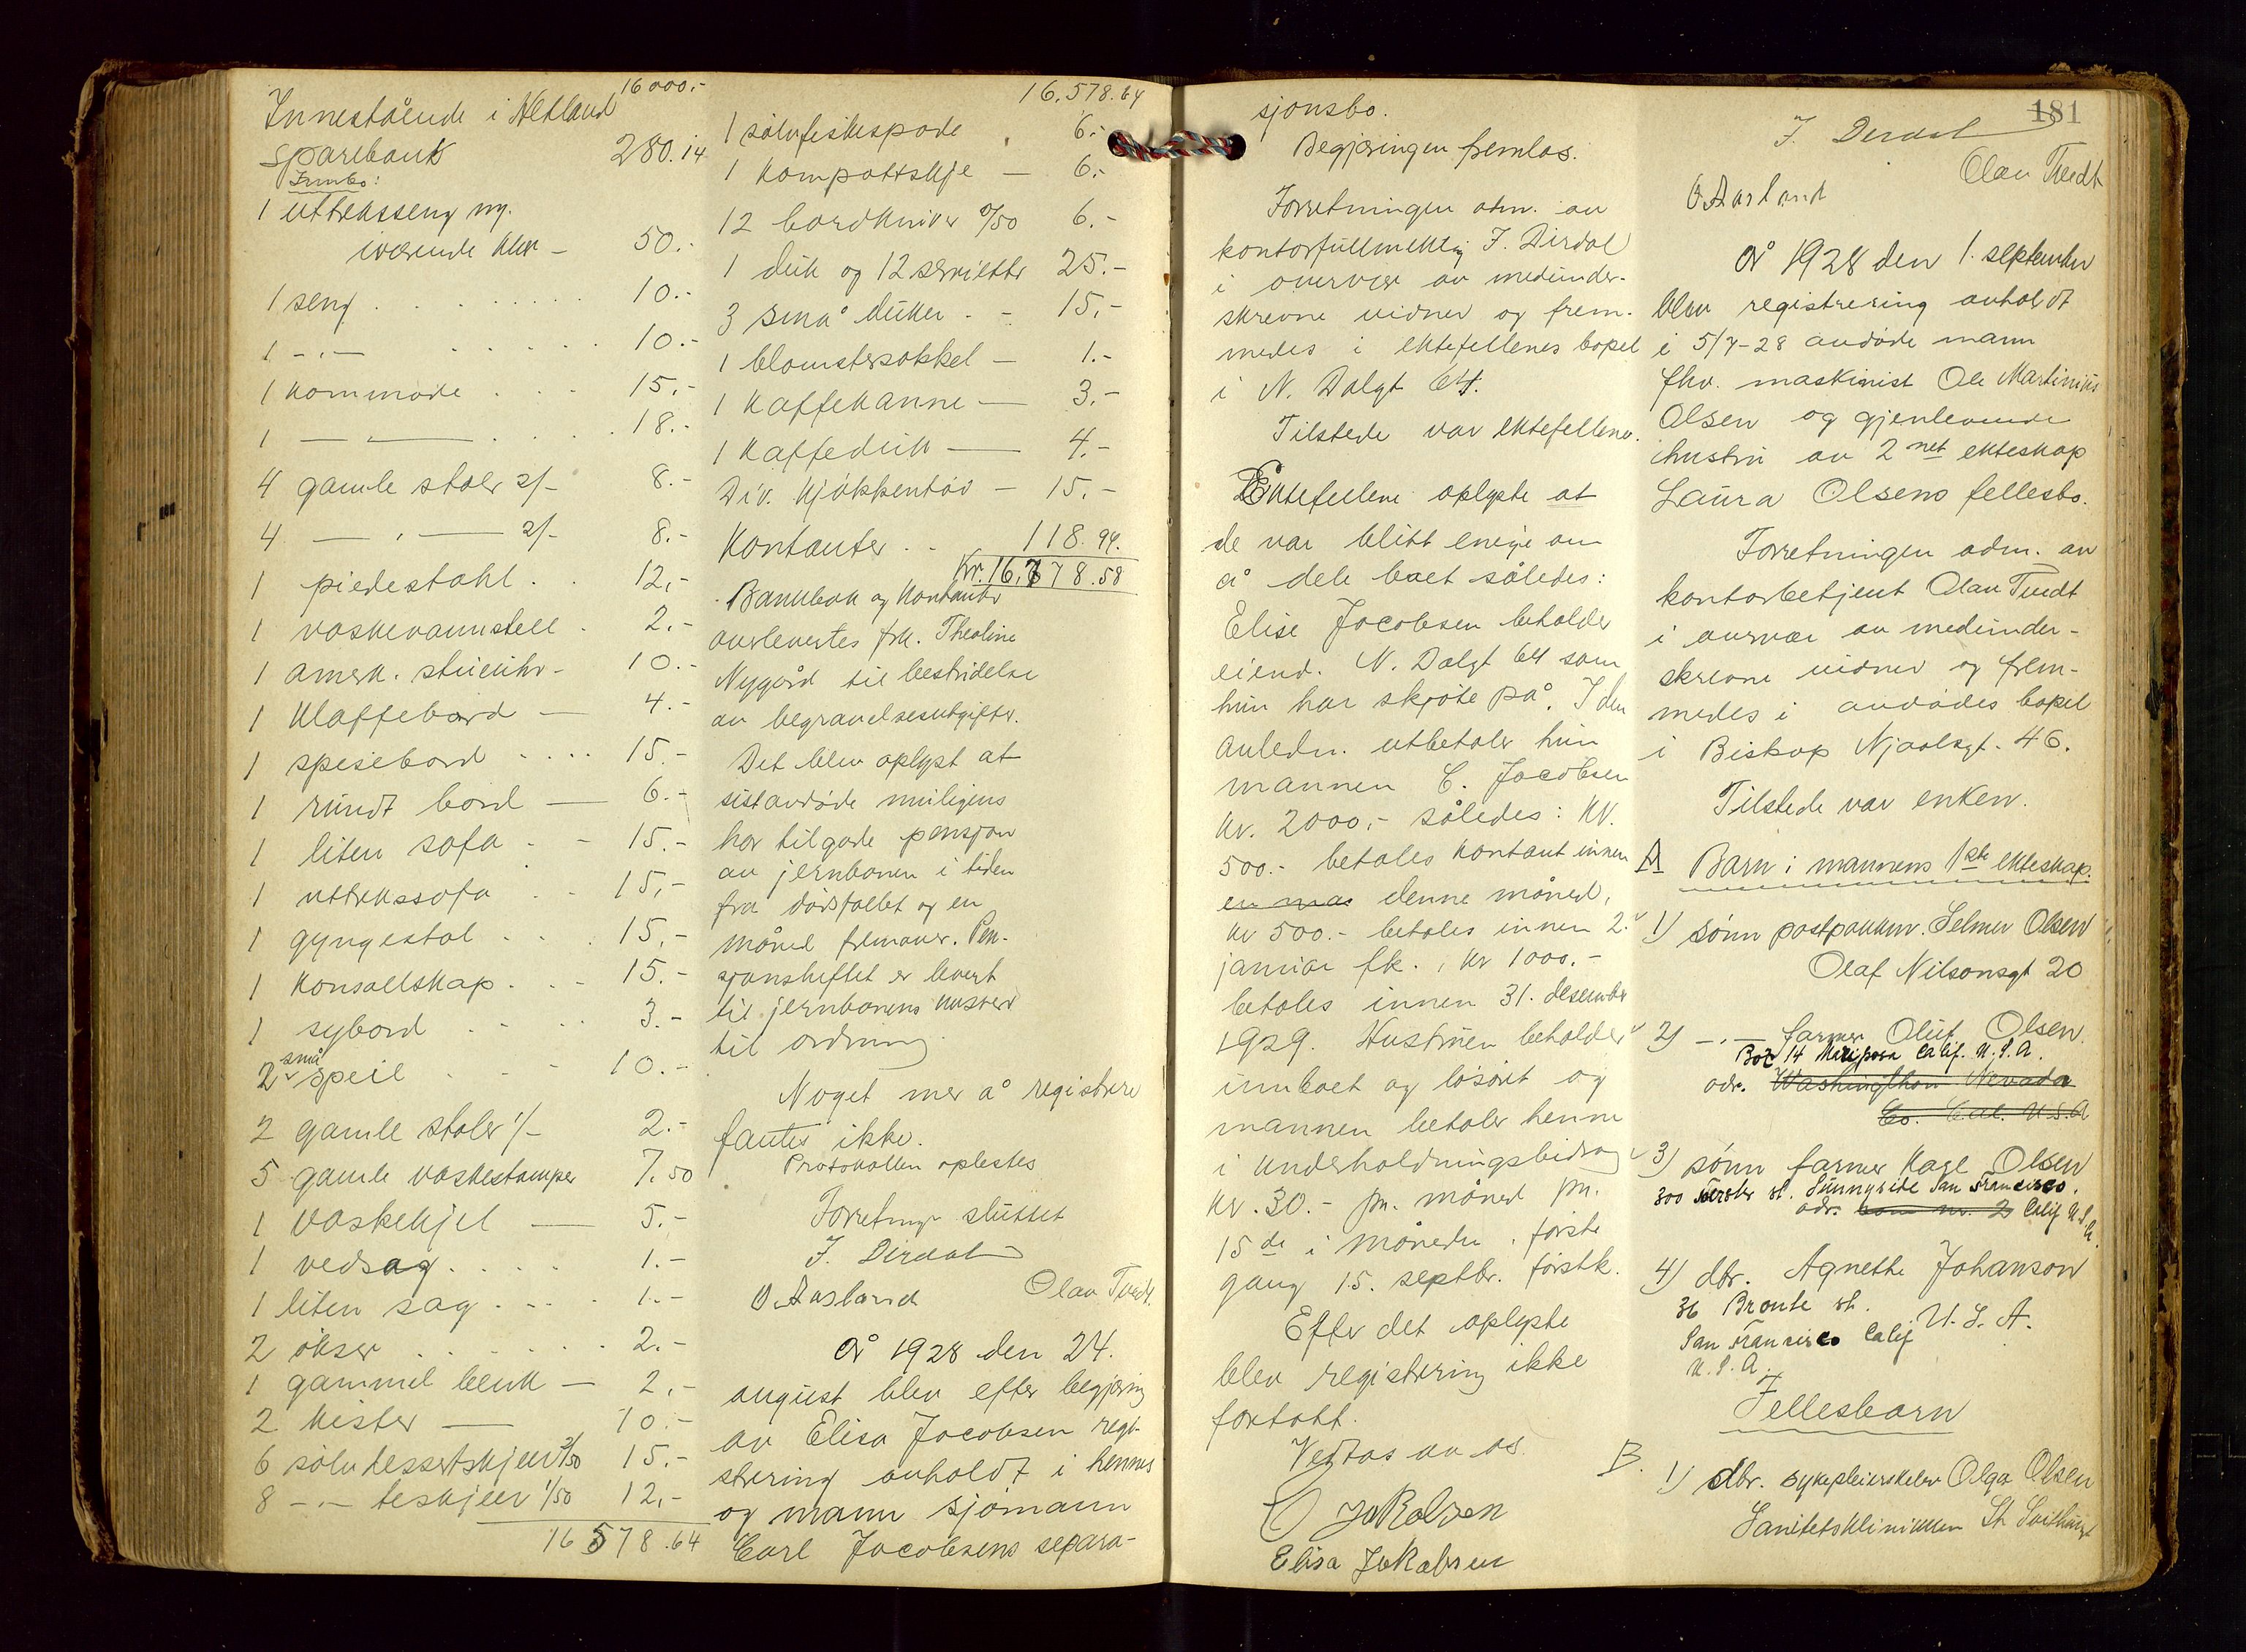 16000.-
Innestående i Hetland
Sparebank 280.14
Innbo:
1 uttrekksseng m.
iværende klær - 50.-
1 seng . . . . . . 10.-
1 -"- . . . . . 10.-
1 kommode . . . 15.-
1 -"- . . . . 18.-
4 gamle stoler 2/- 8.-
4 -"- 2/- 8.-
1 piedestahl . . 12,-
1 vaskevannstell . 2.-
1 amerk. stueuhr - 10.-
1 klaffebord - 4.-
1 spisebord . . . . 15.-
1 rundt bord - 6.-
1 liten sofa - - 15.-
1 uttrekssofa . . 15,-
1 gyngestol . . . 15.-
1 konsollskap . . - 15.-
1 sybord . . . . 3.-
små
2 speil . - - 10.-
2 gamle stoler 1/- 2.-
5 gamle vaskestamper 7.50
1 vaskekjel - 5.-
1 vedsag . . . . 1.-
1 liten sag . . - . 1.-
2 økser . . . . . . 2.-
1 gammel benk - 2,-
2 kister - 10.-
6 sølvdessertskjeer 2/50 15.-
8 -"- teskjeer 1/50 12,-
16 578.64
16.578.64
1 sølvfiskespade . 6.-
1 kompottskje - 6.-
12 bordkniver 0/50 6.-
1 duk og 12 servietter 25.-
3 små duker . - 15,-
1 blomstersokkel - 1.-
1 kaffekanne - 3.-
1 kaffeduk - 4.-
Div. kjøkkentøi - 15.-
Kontanter . . 118.94.
Kr. 16,778.58
Bankbok og kontanter
overlevertes frk. Theoline
Nygård til bestridelse
av begravelsesutgifter.
Det blev oplyst at
sistavdøde muligens
har tilgode pensjon
av jernbanen i tiden
fra dødsfallet og en
måned fremover. Pen-
sjonsheftet er levert
til jernbanens
til ordning.
Noget mer å registrere
fantes ikke.
Protokollen oplestes
Forretninge sluttet
J. Dirdal
O Aasland Olav Tvedt.
År 1928 den 24.
august blev efter begjæring
av Elisa Jacobsen regi-
strering avholdt i hennes
og mann sjømann
Carl Jacobsens separa-
sjonsbo.
Begjæringen fremlas.
Forretningen adm. av
kontorfullmektig J. Dirdal
i overvær av medunder-
skrevne vidner og frem-
medes i ektefellenes bopel
i N. Dalgt 64.
Tilstede var ektefellene.
Ektefellene oplyste at
de var blitt enige om
å dele boet således:
Elise Jacobsen beholder
eiend. N. Dalgt 64 som
hun har skjøte på. I den
anledn. utbetaler hun
mannen C. Jacobsen
kr. 2000,- således: kr.
500.- betales kontant innen
en ma denne måned,
kr 500.- betales innen 2.
januar fk., kr 1000.-
betales innen 31. desember
1929. Hustruen beholder
innboet og løsøret og
mannen betaler henne
i underholdningsbidrag
kr. 30.- pr. måned pr.
15de i måneden, første
gang 15. septbr. førstk.
Efter det oplyste
blev registrering ikke
foretatt.
Vedtas av os.
C Jakobsen
Elisa Jakobsen
181
J. Dirdal
Olav Tvedt
O Aasland
År 1928 den 1. september
blev registrering avholdt
i 5/7-28 avdøde mann
fhv. maskinist Ole Martinius
Olsen og gjenlevende
hustru av 2net ekteskap
Laura Olsens fellesbo.
Forretningen adm. av
kontorbetjent Olav Tvedt
i overvær av medunder-
skrevne vidner og frem-
medes i avdødes bopel
i Biskop Njaalsgt. 46.
Tilstede var enken.
A Barn i mannens 1ste ekteskap.
1) sønn postpakkm. Selmer Olsen
Olaf Nilsonsgt 20
2) -"- farmer Oluf Olsen
Box 14 Mariposa Calif. U.S.A.
adr. Washingthon Nevada
Co. Cal. U.S.A
3) sønn farmer Kare Olsen
300 Foerster st. Sunnyside San Francisco.
adr. Calif U.S.A.
4) dtr. Agnethe Johanson
36 Bronte st. U.S.A.
San Francisco Calif
U.S.A.
Fellesbarn
B. 1) dtr. sykepleierskelev Olga Olsen
Sanitetsklinikken St